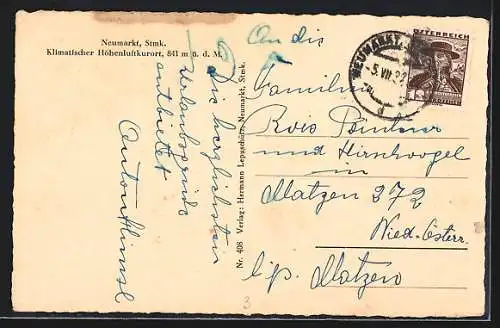 Neumarkt, Stmk.
Klimatischer Höhenluftkurort, 841 m ü. d. M.
Die herzlichsten
Urlaubsgrüße
entbietet
Anton
Nr. 408 Verlag: Hermann Leppschütz, Neumarkt, Stmk.
An die
Familien
und Hirschvogel
in
Matzen 272
Nied. Österr.
Matzen
NEUMARKT
5. VII
ÖSTERREICH
3